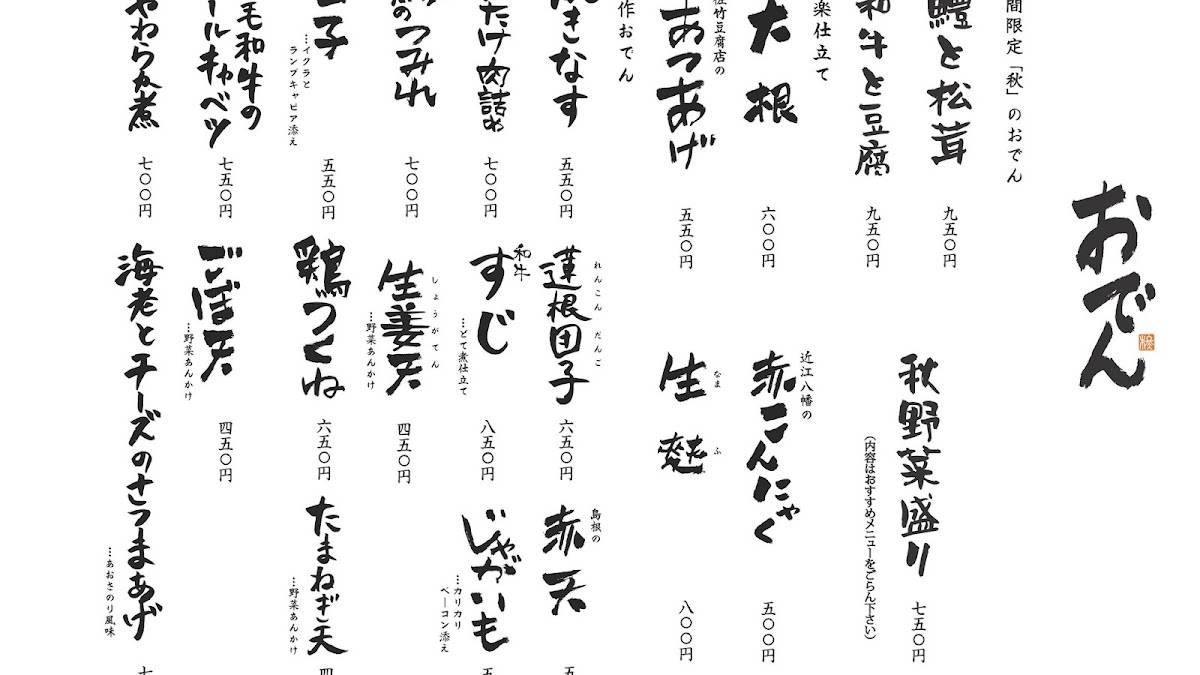 おでん
間限定「秋」のおでん
鱧と松茸
九五〇円
和牛と豆腐
九五〇円
秋野菜盛り
(内容はおすすめメニューをごらん下さい)
七五〇円
楽仕立て
大根
六〇〇円
近江八幡の
赤こんにゃく
五〇〇円
竹豆腐店の
あつあげ
五五〇円
なま ふ
生麩
八〇〇円
作おでん
きなす
五五〇円
れんこん だんご
蓮根団子
六五〇円
島根の
赤天
たけ肉詰め
七〇〇円
和牛
すじ
…どて煮仕立て
八五〇円
じゃがいも
…カリカリ
ベーコン添え
のつみれ
七〇〇円
しょうがてん
生姜天
…野菜あんかけ
四五〇円
子
…イクラと
ランプキャビア添え
五五〇円
鶏つくね
六五〇円
たまねぎ天
…野菜あんかけ
毛和牛の
ールキャベツ
七五〇円
ごぼ天
…野菜あんかけ
四五〇円
やわらか煮
七〇〇円
海老とチーズのさつまあげ
…あおさのり風味